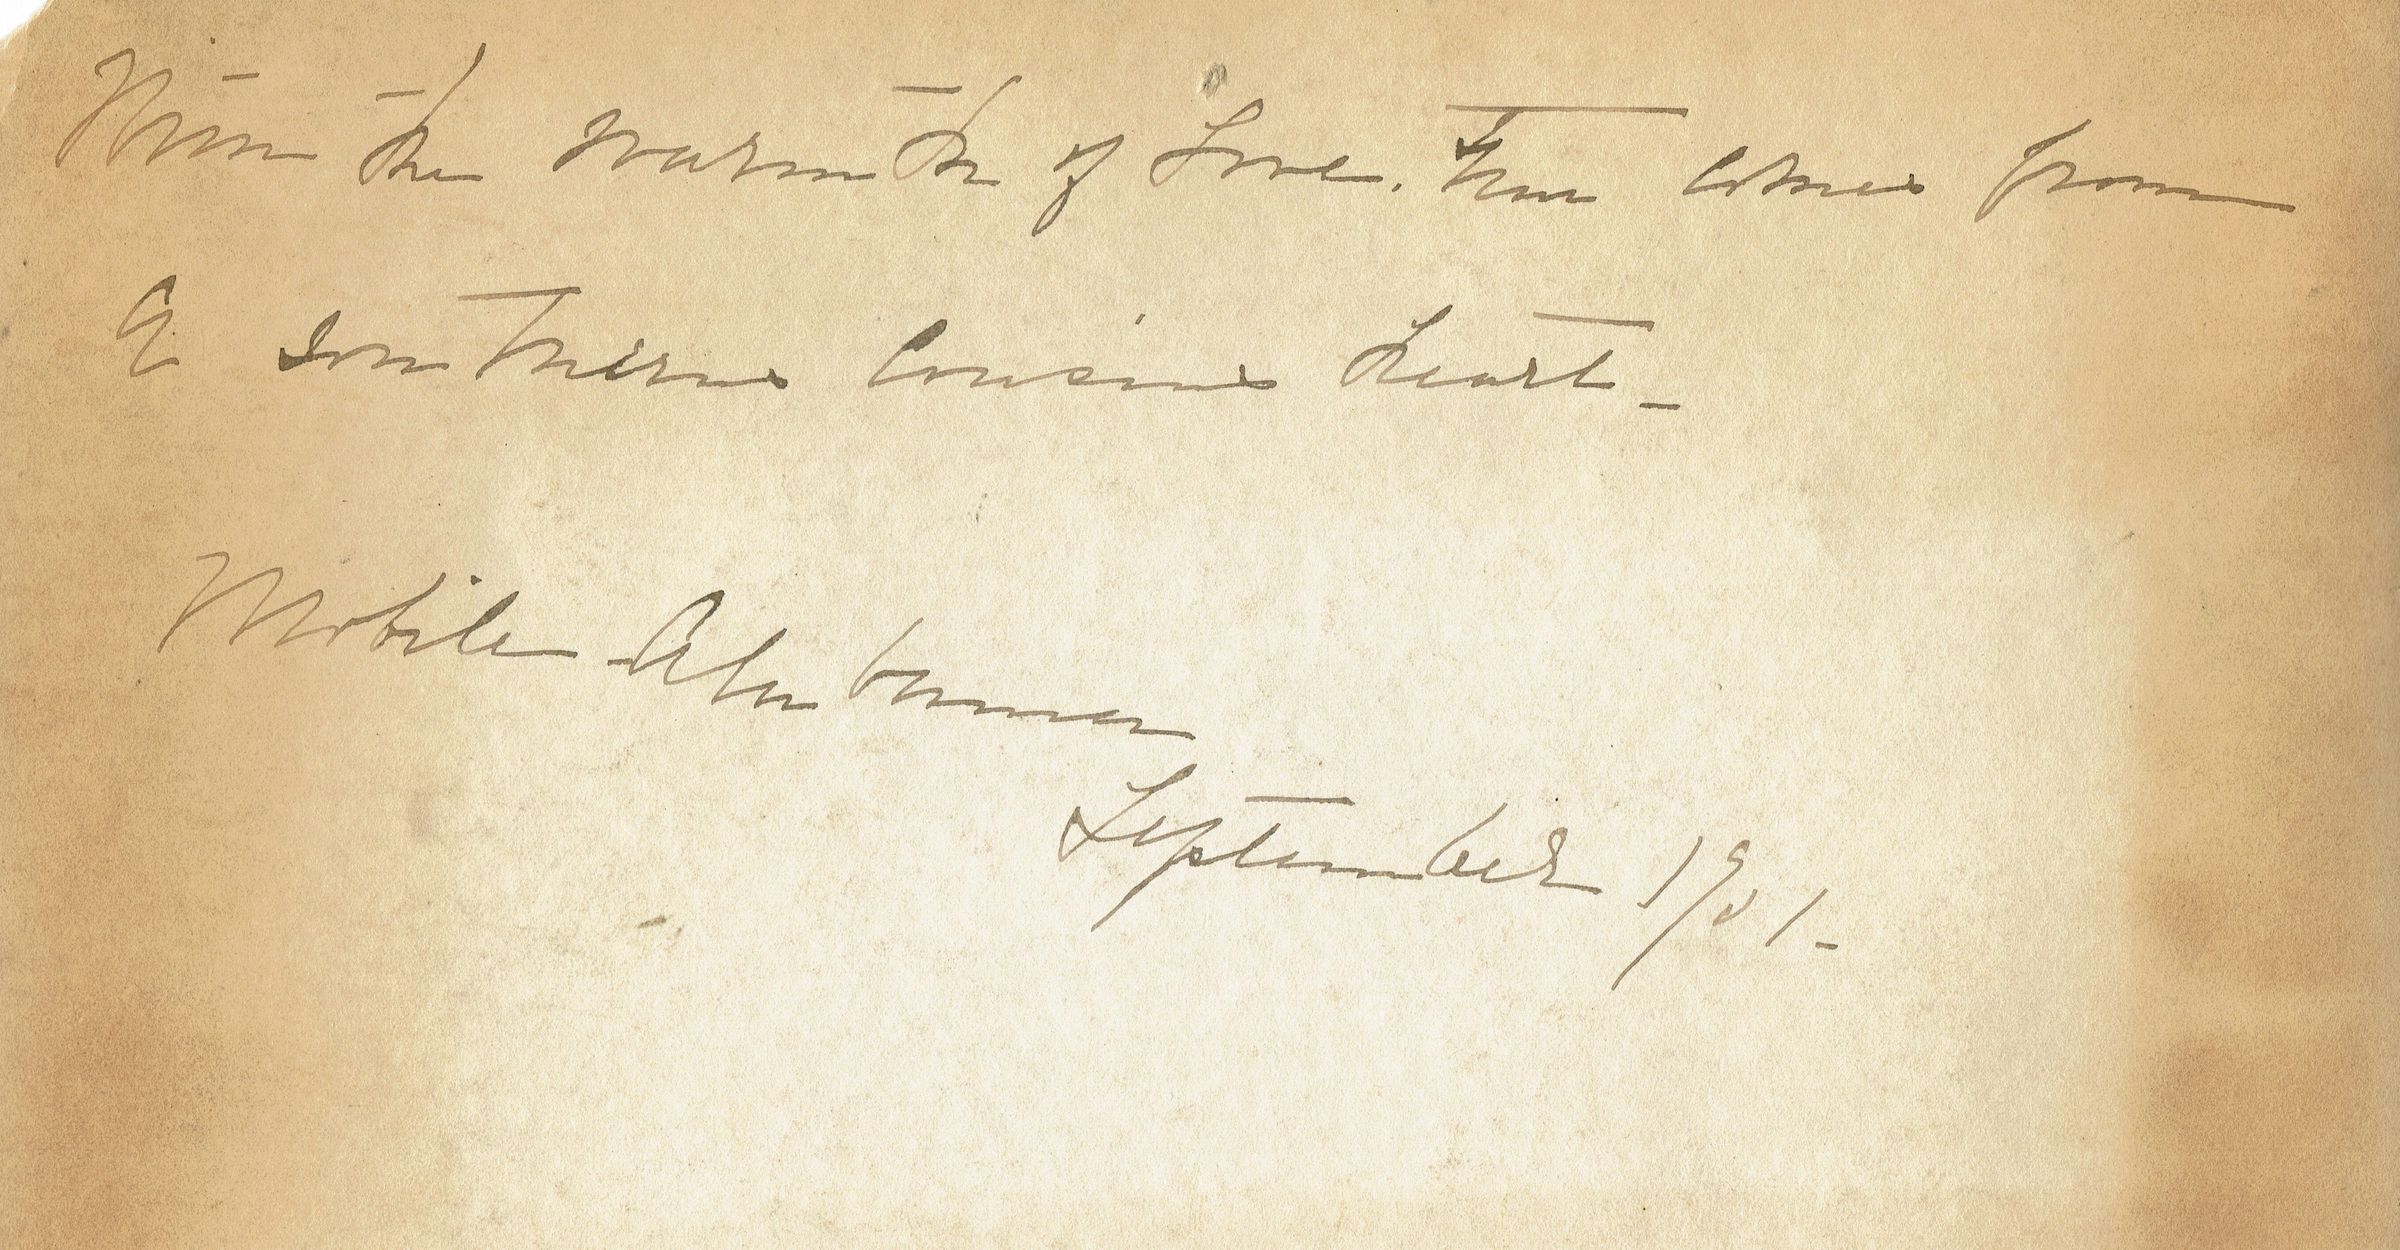 With the warmth of Love. that comes from
a southerns Cousins heart_
Mobile Alabama
September 1901_